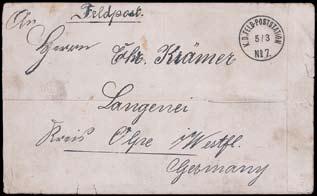 Feldpost.
An
Herrn Chr. Krämer
Langenei
Kreis Olpe i/Westfl.
Germany
K.D. FELD-POSTSTATION
5/3
No 7.